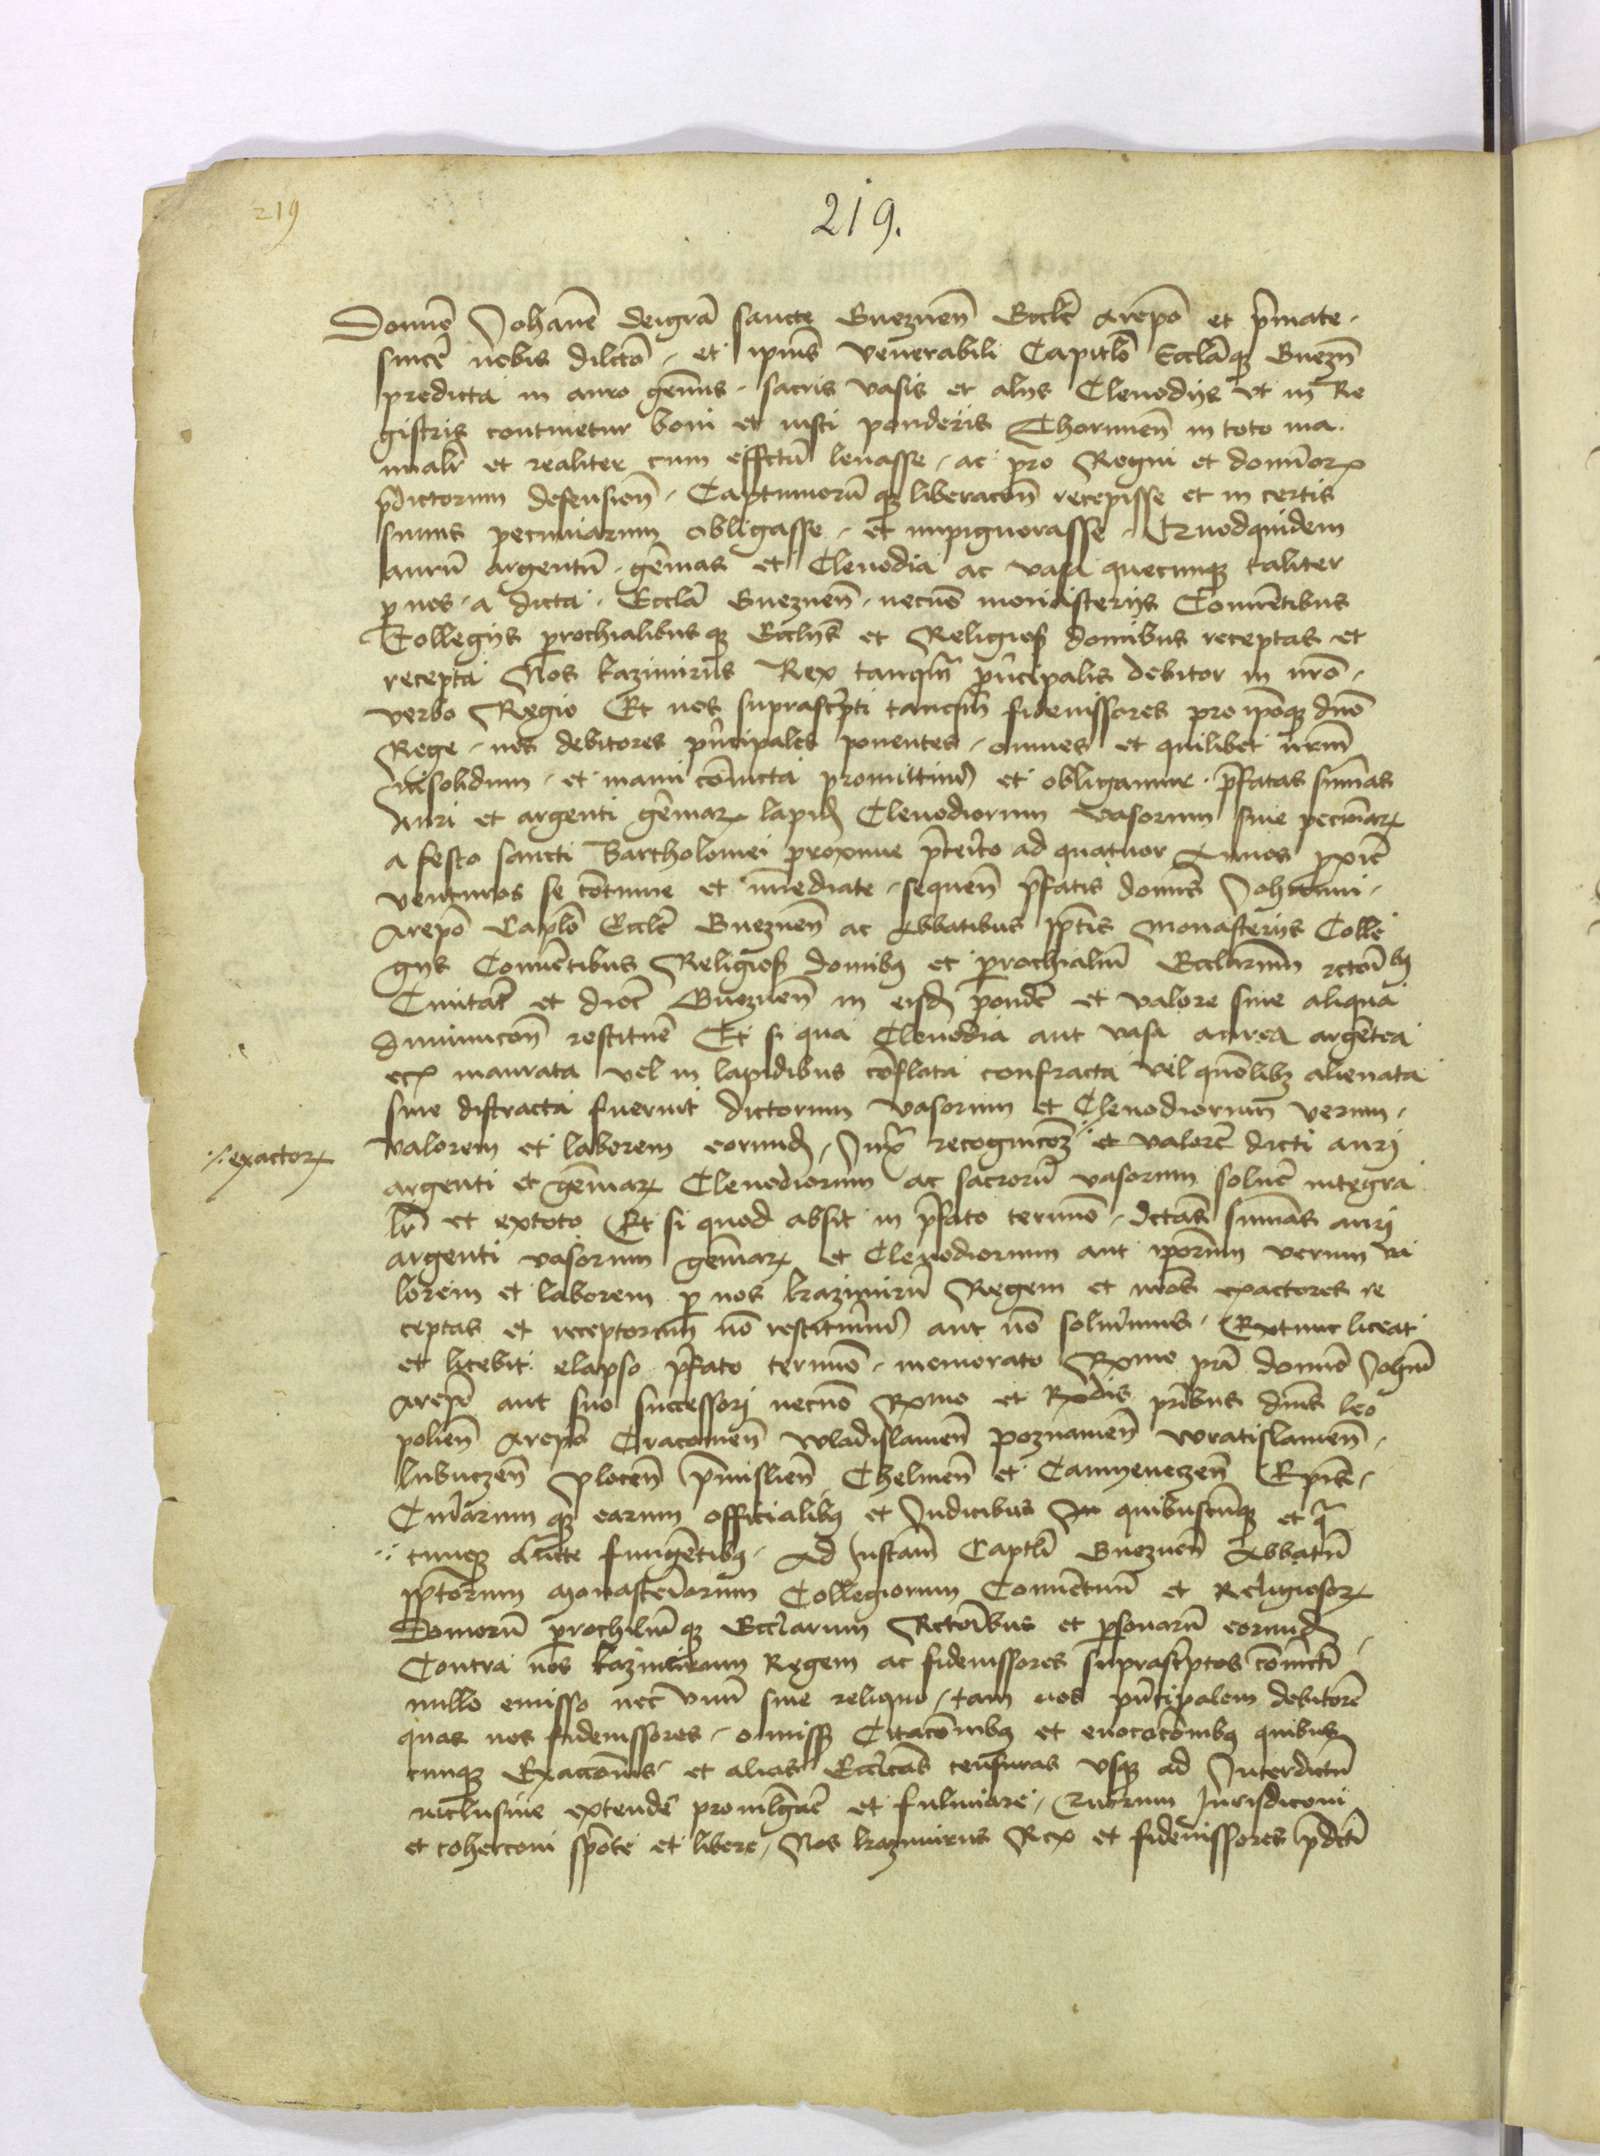 219
219.
Domno Johane deigra sancte Gneznen Eccle Arepo et pmate
sincere nobis dilcto et ipius venerabili Capitlo Ecclaq Gnezn
predicta in auro gemis sacris vasis et alys Clenodys vt in Re
gistris continetur boni et iusti ponderis Thorunen in toto ma
nualr et realiter cum effctu leuasse ac pro Regni et dominor
pdictorum defension Captiuorum q liberacon recepisse et in certis
summis pecuniarum obligasse et impignorasse Quodquidem
aurum argentum gemas et Clenodia ac vasa quecunq taliter
p nos a dicta Eccla Gneznen necno monasterys Conuetibus
Collegys prochialibus q Ecclys et Religios domibus receptas et
recepta Nos kazimirus Rex tanqm principalis debitor in nro
verbo Regio Et nos suprascripti tanqm fideiussores pro ipoq dno
Rege nos debitores principales ponentes omnes et quilibet nrm
insolidum et manu coniucta promittim et obligamur pfatas summas
Auri et argenti gemar lapid Clenodiorum Vasorum siue pecuniar
a festo sancti Bartholomei proxime pterito ad quatuor Annos pxie
venturos se cotinue et imediate sequen pfatis domis Johanni
Arepo Caplo Eccle Gneznen ac Abbatibus ipetis Monasterys Colle
gys Conuetibus Religios domibus et prochialium Ecclarum rctoribus
Ciuitat et dioc Gneznen in eisd ponde et valore sine aliqua
Diminucon restituere Et si qua Clenodia aut vasa aurea argentea
etc inaurata vel in lapidibus coflata confracta vel quolibz alienata
siue distracta fuerint dictorum Vasorum et Clenodiorum verum
valorem et laborem eorund Juxta recognicoz et valore dicti auri
exactor
argenti et gemar Clenodiorum ac sacrorum vasorum soluere integra
lr et extoto Et si quod absit in pfato termino dctas summas auri
argenti vasorum gemar et Clenodiorum aut iporum verum va
lorem et laborem p nos kazimirum Regem et nros exactores re
ceptas et receptorum no restituerim aut no soluerimus Extunc liceat
et licebit elapso pfato termino memorato Rxmo pri domno Johni
Arepo aut suo successori necno Rxmo et Rxdis pribus dnis leo
polien Arepo Cracouien Wladislauien poznanien Wratislauien
lubuczen Plocen Pmislien Chelmen et Camyeneczen Epis
Curiarum q earum officialibus et Judicibus quibuscunq et q
cunq aucte fungetibus Ad instam Captli Gneznen Abbatum
ipetorum Monasteriorum Collegiorum Conuentuum et Religiosor
Domorum prochilium q Ecclarum Rctoribus et psonarum eorund
Contra nos kazimirum Regem ac fideiussores suprascriptos coniucti
nullo emisso nec vnum sine reliquo tam nos principalem debitore
quas nos fideiussores omissis Citacoibus et euocacoibus quibus
cunq Exaccois et alias Ecclicas censuras vsq ad Interdictum
inclusiue extendere promulgare et fulminare Quorum Jurisdiconi
et coherconi spote et libere Nos kazimirus Rex et fideiussores pdcti